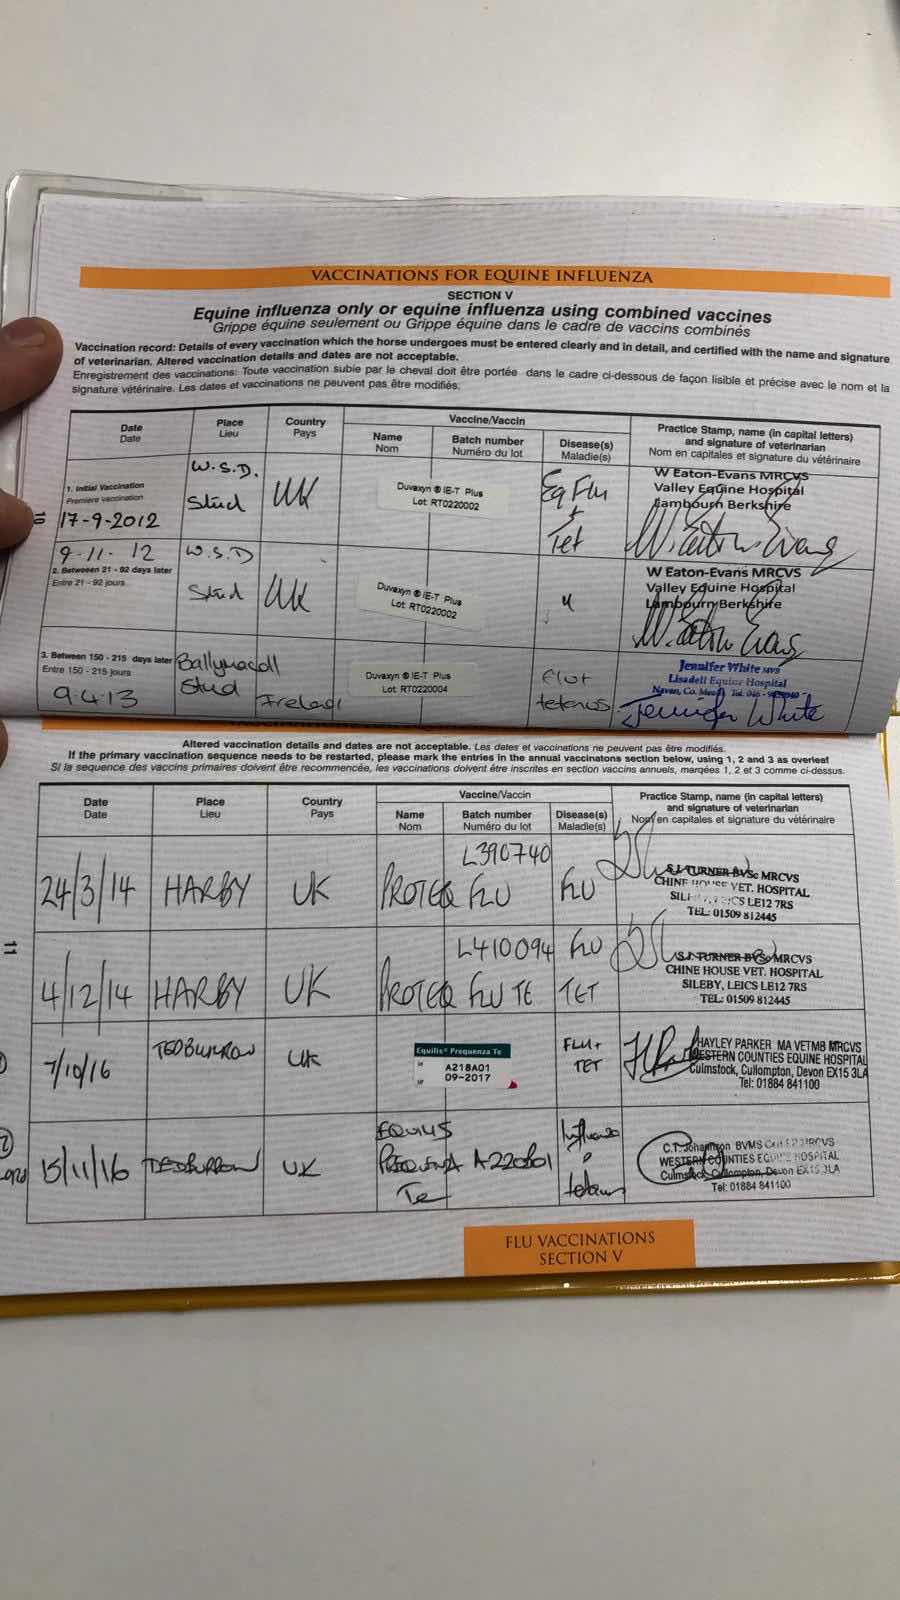 VACCINATIONS FOR EQUINE INFLUENZA
SECTION V
Equine influenza only or equine influenza using combined vaccines
Grippe équine seulement ou Grippe équine dans le cadre de vaccins combinés
Vaccination record: Details of every vaccination which the horse undergoes must be entered clearly and in detail, and certified with the name and signature
of veterinarian. Altered vaccination details and dates are not acceptable.
Enregistrement des vaccinations: Toute vaccination subie par le cheval doit être portée dans le cadre ci-dessous de façon lisible et précise avec le nom et la
signature vétérinaire. Les dates et vaccinations ne peuvent pas être modifiés.
Date Place Country Vaccine/Vaccin Practice Stamp, name (in capital letters)
Date Lieu Pays Name Batch number Disease(s) and signature of veterinarian
Nom Numéro du lot Maladie(s) Nom en capitales et signature du vétérinaire
1. Initial Vaccination
Première vaccination
17-9-2012 W.S.D. Stud UK Duvaxyn ® IE-T Plus
Lot: RT0220002
Eq Flu + Tet
W Eaton-Evans MRCVS
Valley Equine Hospital
Lambourn Berkshire
W. Eaton-Evans
10
9-11-12 W.S.D
2. Between 21 - 92 days later
Entre 21 - 92 jours
Stud UK Duvaxyn ® IE-T Plus
Lot: RT0220002
"
W Eaton-Evans MRCVS
Valley Equine Hospital
Lambourn Berkshire
W. Eaton Evans
3. Between 150 - 215 days later
Entre 150 - 215 jours
9.4.13 Stud Ireland Duvaxyn ® IE-T Plus
Lot: RT0220004
Flu+ tetanus
Jennifer White MVB
Lisadell Equine Hospital
Navan, Co. Meath. Tel: 046 -
Jennifer White
Altered vaccination details and dates are not acceptable. Les dates et vaccinations ne peuvent pas être modifiés.
If the primary vaccination sequence needs to be restarted, please mark the entries in the annual vaccinatons section below, using 1, 2 and 3 as overleaf
Si la sequence des vaccins primaires doivent être recommencée, les vaccinations doivent être inscrites en section vaccins annuels, marqées 1, 2 et 3 comme ci-dessus.
Date Place Country Vaccine/Vaccin Practice Stamp, name (in capital letters)
Date Lieu Pays Name Batch number Disease(s) and signature of veterinarian
Nom Numéro du lot Maladie(s) Nom en capitales et signature du vétérinaire
L390740
24/3/14 HARBY UK PROTEQ FLU FLU
S.J. TURNER BVSc MRCVS
CHINE HOUSE VET. HOSPITAL
LEICS LE12 7RS
TEL: 01509 812445
11
L410094 FLU
4/12/14 HARBY UK PROTEQ FLU TE TET
S.J. TURNER BVSc MRCVS
CHINE HOUSE VET. HOSPITAL
SILEBY, LEICS LE12 7RS
TEL: 01509 812445
7/10/16 TEDBURROW UK Equilis® Prequenza Te
A218A01
09-2017
FLU+
TET
HAYLEY PARKER MA VETMB MRCVS
WESTERN COUNTIES EQUINE HOSPITAL
Culmstock, Cullompton, Devon EX15 3LA
Tel: 01884 841100
2
15/11/16 TEDBURROW UK EQUILIS
PREQUENZA
Te
A220B01
Influenza
tetanus
C.T. Johannson BVMS MRCVS
WESTERN COUNTIES EQUINE HOSPITAL
Culmstock, Cullompton, Devon EX15 3LA
Tel: 01884 841100
FLU VACCINATIONS
SECTION V